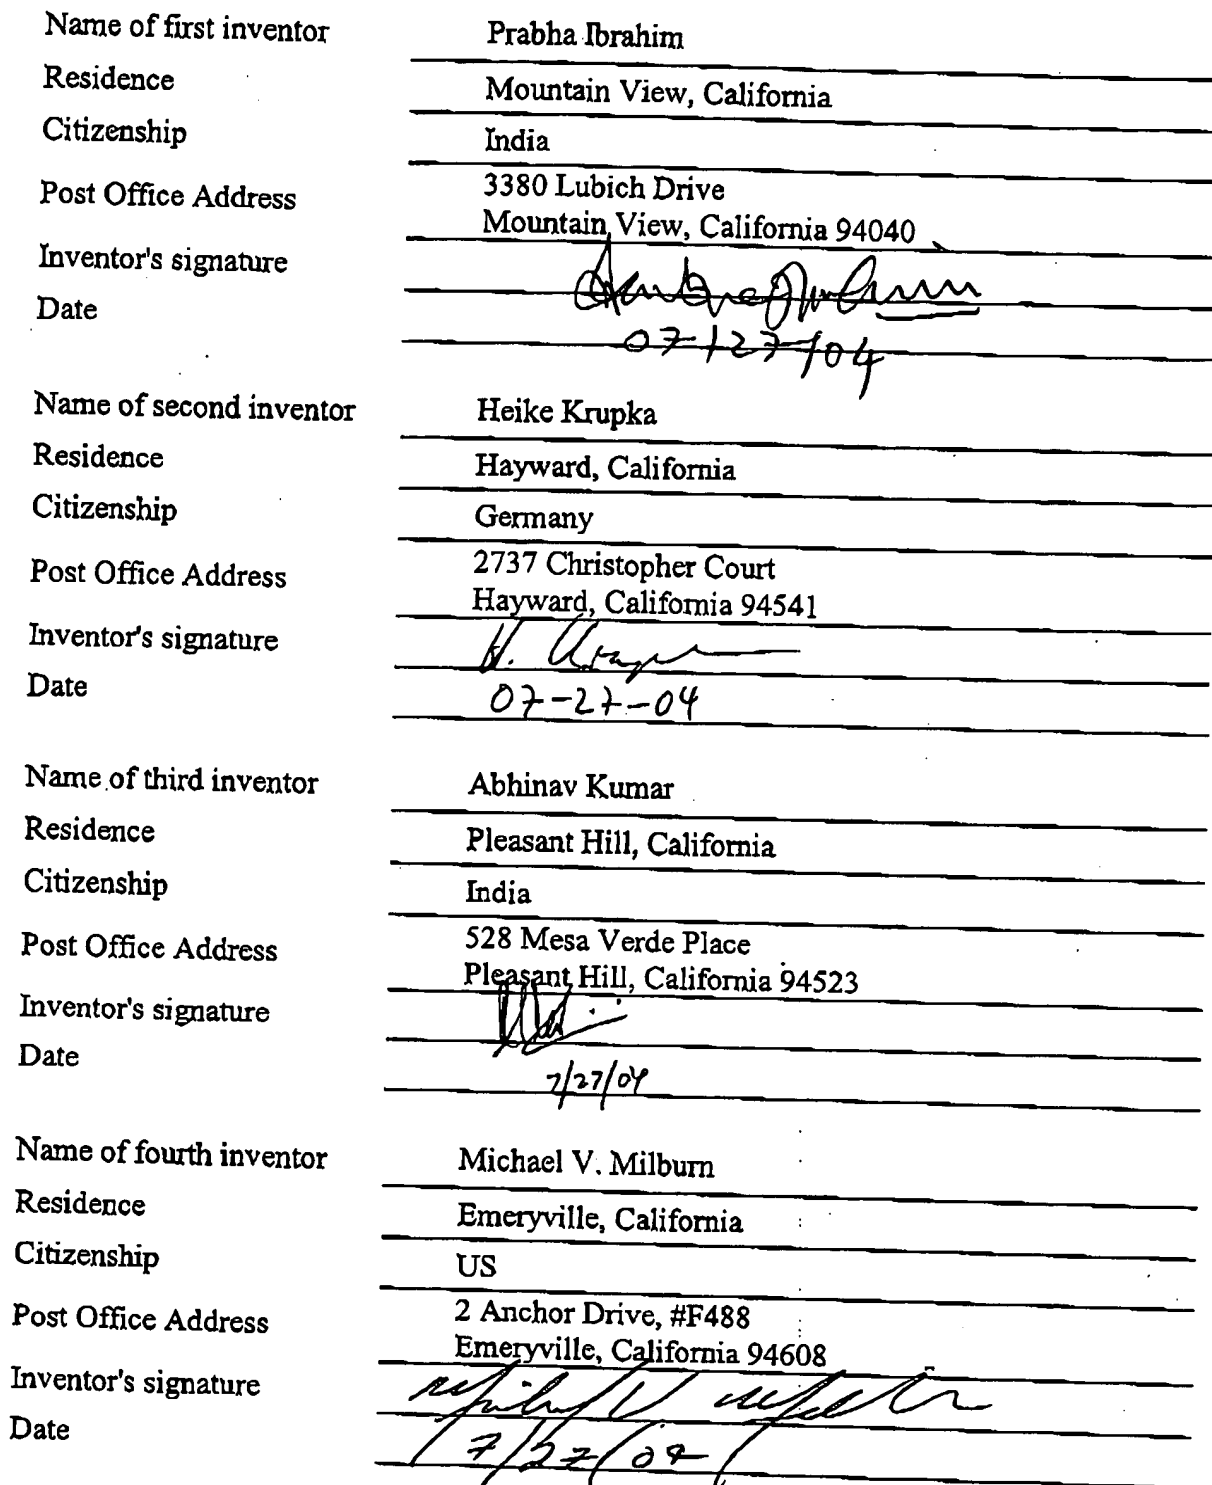 Name of first inventor Prabha Ibrahim
Residence Mountain View, California
Citizenship India
Post Office Address 3380 Lubich Drive
Mountain View, California 94040
Inventor's signature
Date 07/27/04
Name of second inventor Heike Krupka
Residence Hayward, California
Citizenship Germany
Post Office Address 2737 Christopher Court
Hayward, California 94541
Inventor's signature H. Krupka
Date 07-27-04
Name of third inventor Abhinav Kumar
Residence Pleasant Hill, California
Citizenship India
Post Office Address 528 Mesa Verde Place
Pleasant Hill, California 94523
Inventor's signature
Date 7/27/04
Name of fourth inventor Michael V. Milburn
Residence Emeryville, California
Citizenship US
Post Office Address 2 Anchor Drive, #F488
Emeryville, California 94608
Inventor's signature Michael V. Milburn
Date 7/27/04